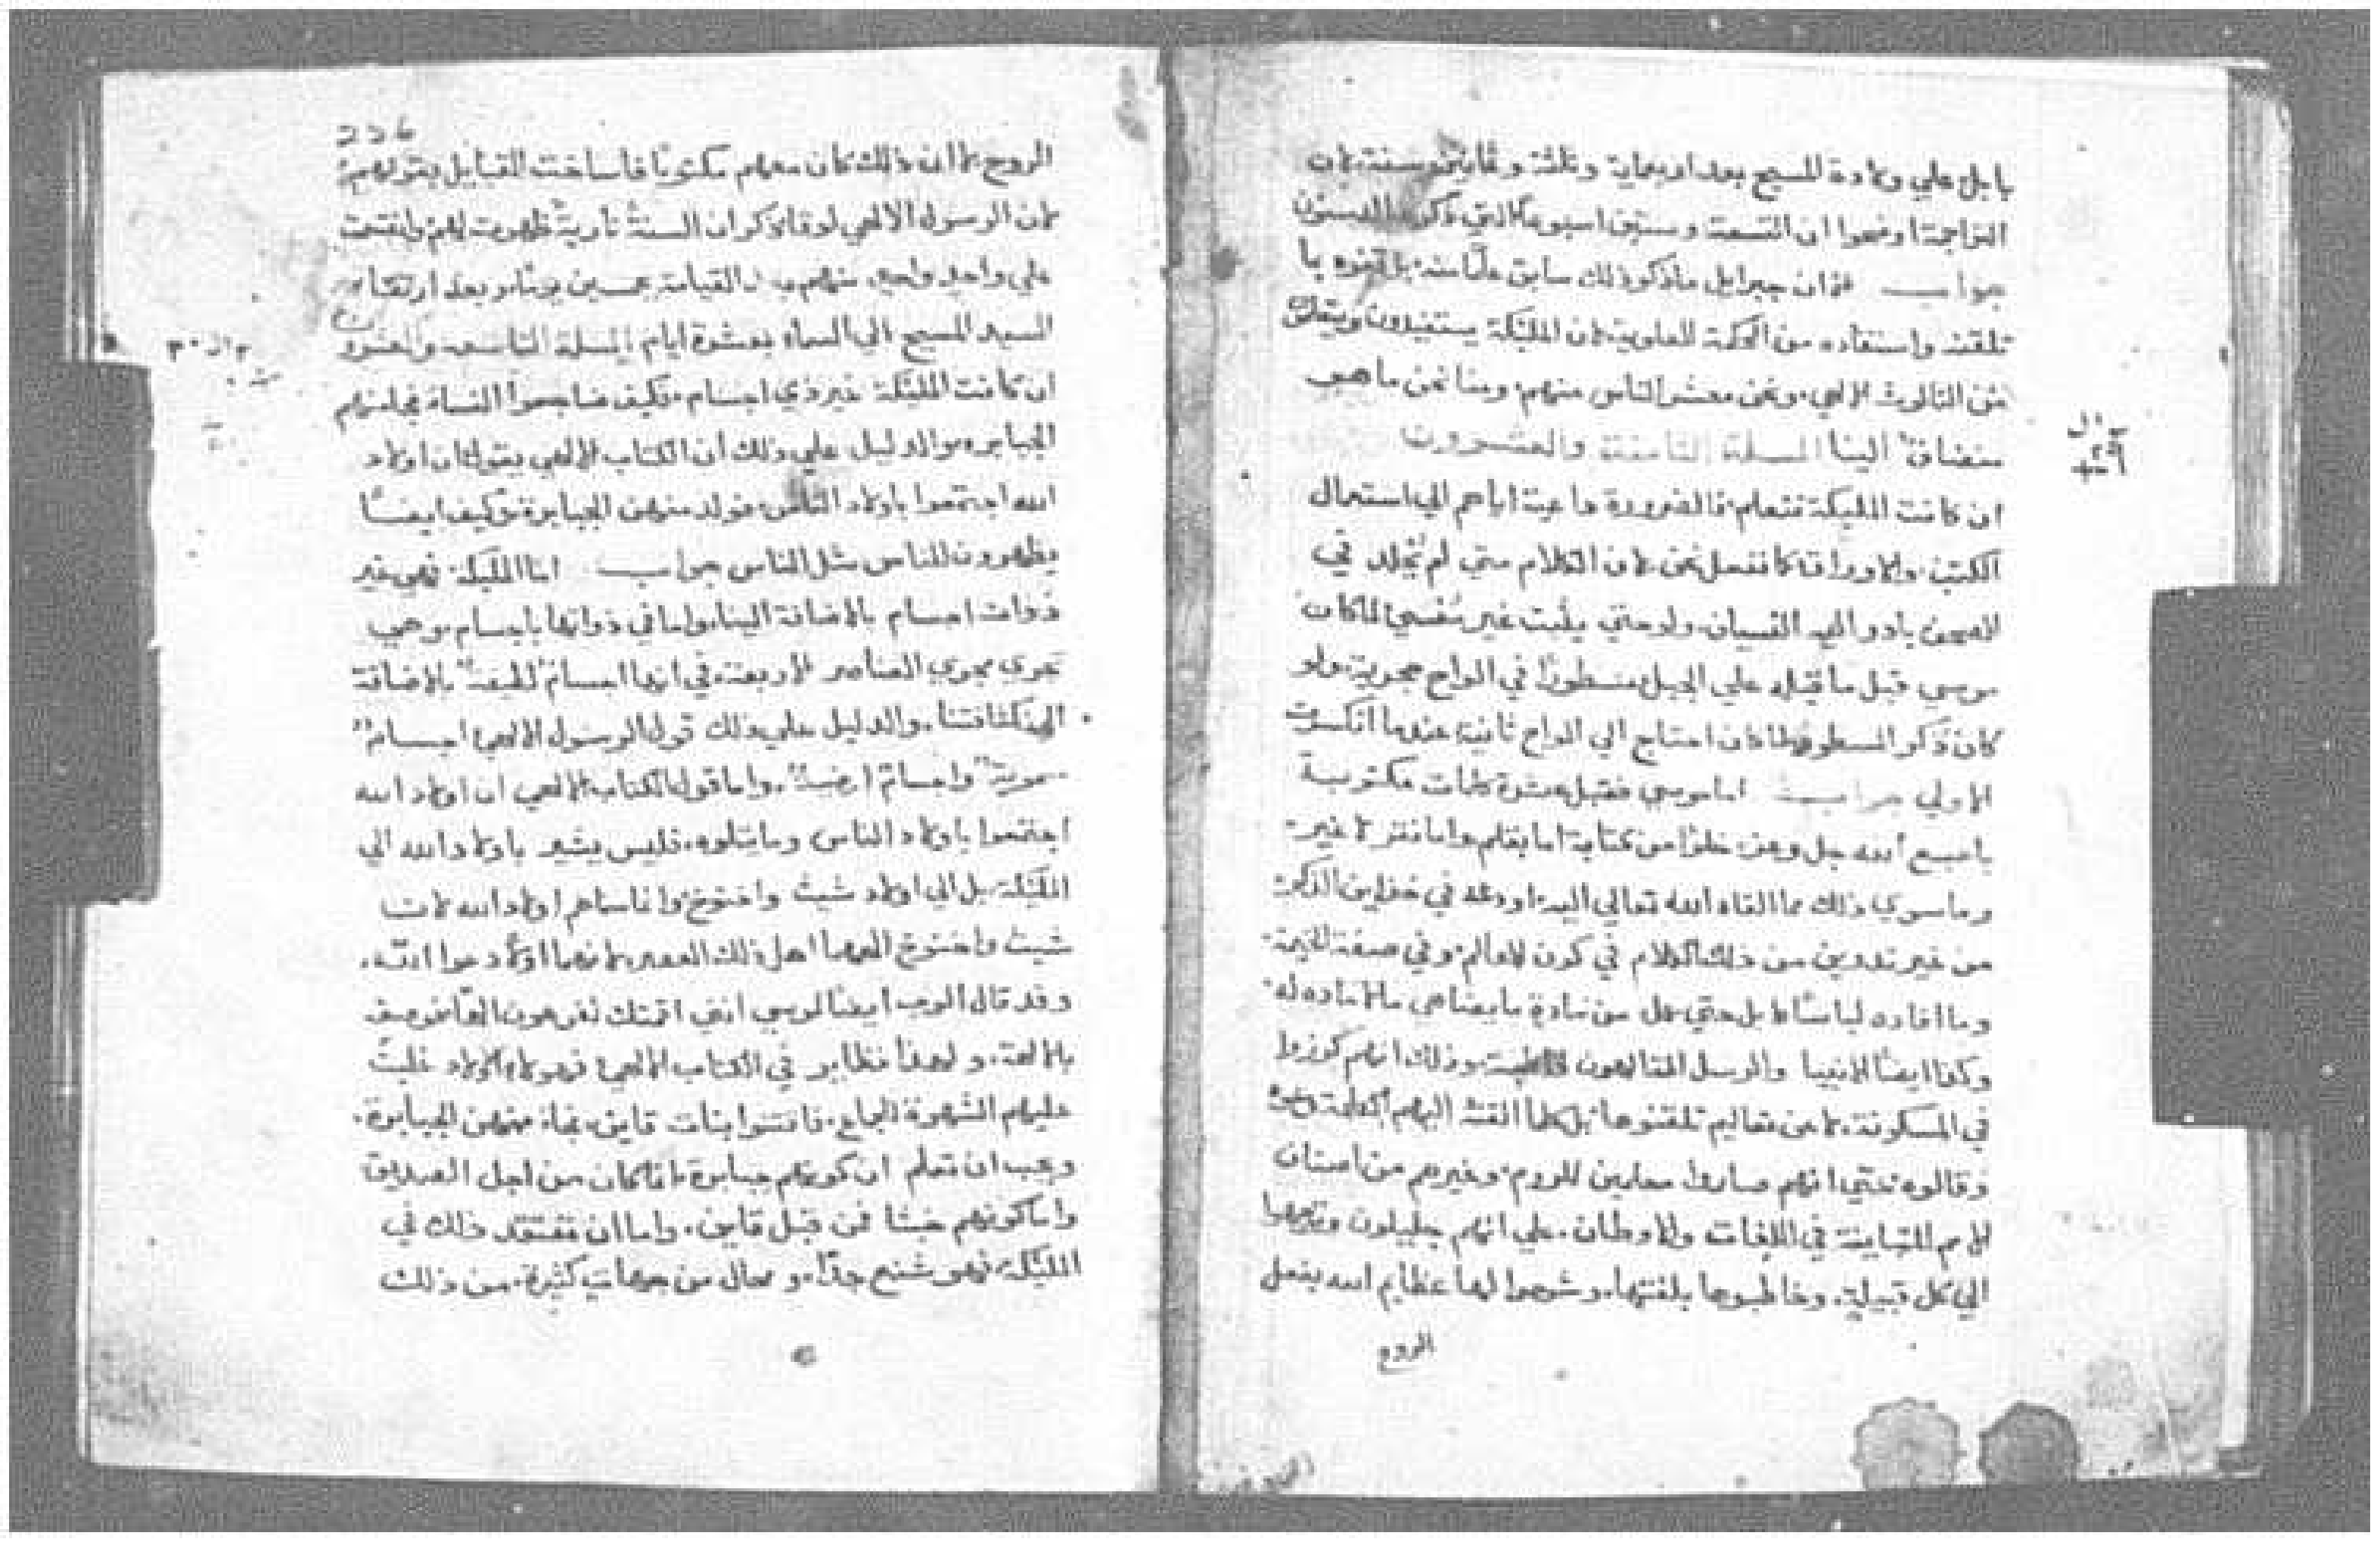 بابل علي ولادة المسيح بعد اربعماية وثلثة وثمانين سنة لان
التراجمة اوضحوا ان التسعة وستين اسبوعًا التي
جواب فان جبرايل ماذكر ذلك سابق علمًا منه بل تفوه بما
تلقنه واستفاده من الحكمة العلوية لان المليكة يستفيدون
من الثالوث الالهي ونحن معشر الناس منهم ومنا نحن ما هو
منضاف الينا المسلة الثامنة والعشرون
سوال
٢٩
ان كانت المليكة تتعلم فالضرورة داعية اياهم الي استعمال
الكتب والاوراق كما نفعل نحن لان الكلام متي لم يُخلد في
الصحف بادر اليه النسيان ولو حتي يلبث غير مُنسي لما كان
موسي قبل ما قبله علي الجبل مسطورًا في الواح حجرية ولو
كان ذكر المسطور لما كان احتاج الي الواح ثانية عندما انكسرت
الاولي جواب اما موسي فقبل عشرة كلمات مكتوبة
باصبع الله جل وعز خلوًا من كتابة اما بقلم واما نقر لا غير
وما سوي ذلك مما القاه الله تعالي اليه اودعه في خزاين الذكر
من غير تدوين من ذلك الكلام في كون العالم وفي صفة الخيمة
وما افاده لباسًا بل حتي عمل من مادةٍ ما يضاهي ما لا ماده له
وكذا ايضًا الانبيا والرسل المتالهون وذلك انهم كرزوا
في المسكونة لا من تعاليم تلقنوها بل كلما القته اليهم الحكمة
وقالوه حتي انهم صاروا معلمين للروم وغيرهم من اصناف
الامم المتباينة في اللغات والاوطان علي انهم جليليون وتوجهوا
الي كل قبيلة وخاطبوها بلغتها وشرحوا لها عظايم الله بفعل
الروح
226
الروح لا ان ذلك كان معهم مكتوبًا فاساخت القبايل بقولهم
لان الرسول الالهي لوقا ذكر ان السنةً نارية ظهرت لهم وانقسمت
علي واحدٍ واحدٍ منهم بعد القيامة بخمسين يومًا وبعد ارتقا
السيد المسيح الي السماء بعشرة ايام المسلة التاسعه والعشرون
سوال ٣٠
ان كانت المليكة غير ذي اجسام فكيف ضاجعوا النساء فجا منهم
الجبابره والدليل علي ذلك ان الكتاب الالهي يقول ان اولاد
الله اجتمعوا باولاد الناس فولد منهن الجبابرة وكيف ايضًا
يظهرون للناس مثل الناس جواب اما المليكة فهي غير
ذوات اجسام بالاضافة الينا واما في ذواتها باجسام وهي
تجري مجري العناصر الاربعة في انها اجسامٌ لطيفة بالاضافة
الي كثافتنا والدليل علي ذلك قول الرسول الالهي اجسامٌ
سموية واجسامٌ ارضية واما قول الكتاب الالهي ان اولاد الله
اجتمعوا باولاد الناس وما يتلوه فليس يشير باولاد الله الي
المليكة بل الي اولاد شيث واخنوخ وانما سماهم اولاد الله لان
شيث واخنوخ الههما اهل ذلك العصر لا نهما اولًا دعوا الله
وقد قال الرب ايضًا لموسي انني اقمتك لفرعون الهًا
بالالهة ولهذا نظاير في الكتاب الالهي فهولاي الاولاد غلبت
عليهم الشهوة للجماع فافتتنوا بنات قاين فجاء منهن الجبابرة
ويجب ان تعلم ان كونهم جبابرة انما كان من اجل الصديق
واما كونهم خبثا فمن قبل قاين واما ان نعتقد ذلك في
المليكة فهو شنيع جدًا ومحال من جهات كثيرة من ذلك